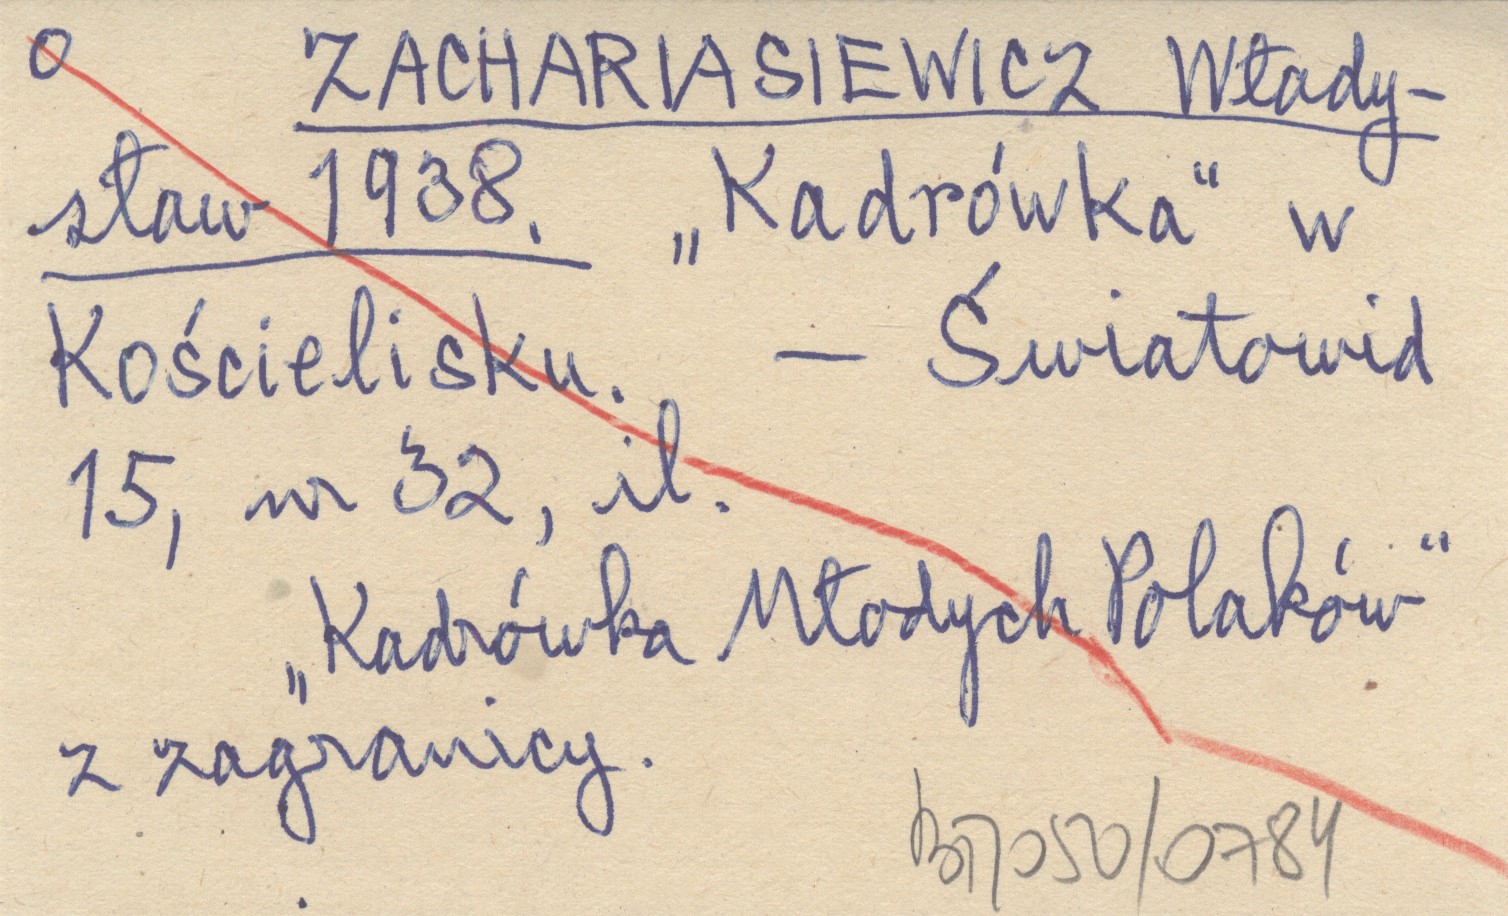 o ZACHARIASIEWICZ Włady-
sław 1938. „Kadrówka" w
Kościelisku. — Światowid
15, nr 32, il.
„Kadrówka Młodych Polaków"
z zagranicy.
050/0784